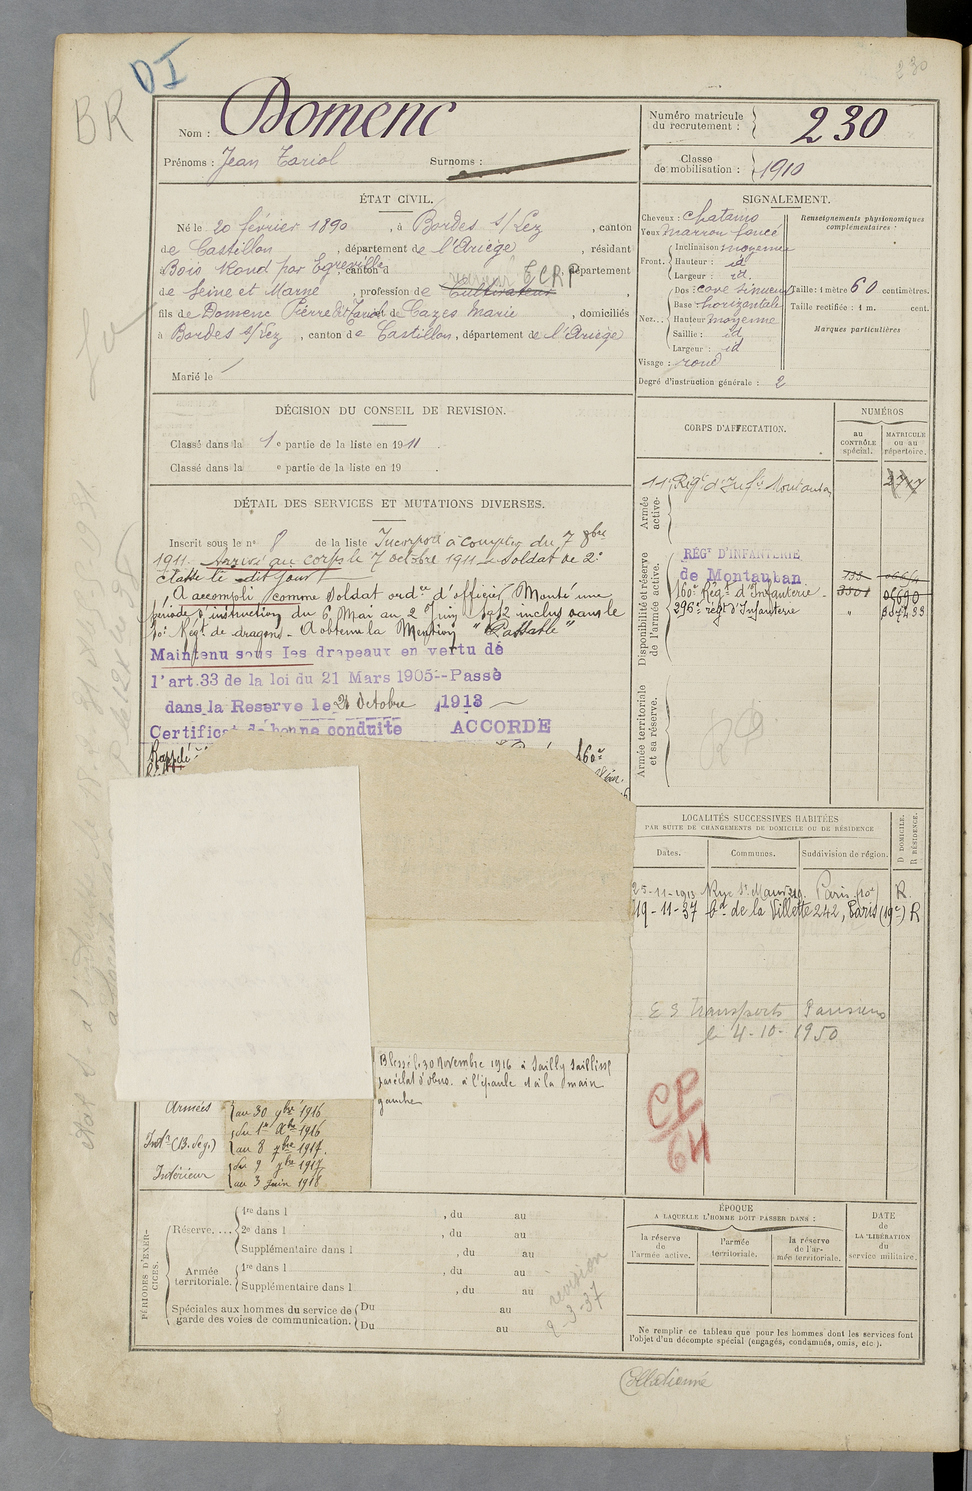 DI
BR
230
Nom : Domenc
Prénoms : Jean Tariol Surnoms :
Numéro matricule du recrutement : 230
Classe de mobilisation : 1910
ÉTAT CIVIL.
Né le 20 février 1890, à Bordes s/Lez, canton
de Castillon, département de l'Ariège, résidant
Bois Rond par Egreville, canton d département
de Seine et Marne, profession de Cultivateur T.C.R.P
fils de Domenc Pierre dit Tariol et de Cazes Marie, domiciliés
à Bordes s/Lez, canton de Castillon, département de l'Ariège
Marié le
SIGNALEMENT.
Cheveux : chatains
Yeux marron foncé
Front. Inclinaison moyenne
Hauteur : id
Largeur : id.
Nez... Dos : cave sinueux
Base horizontale
Hauteur moyenne
Saillie : id
Largeur : id
Visage : rond
Degré d'instruction générale : 2
Renseignements physionomiques complémentaires :
Taille : 1 mètre 60 centimètres.
Taille rectifiée : 1 m. cent.
Marques particulières
DÉCISION DU CONSEIL DE REVISION.
Classé dans la 1e partie de la liste en 1911.
Classé dans la e partie de la liste en 19 .
CORPS D'AFFECTATION.
NUMÉROS
au CONTRÔLE spécial.
MATRICULE ou au répertoire.
Armée active.
11e Régt d'Infie Montauban
2717
Disponibilité et réserve de l'armée active.
RÉGt D'INFANTERIE
de Montauban
160e Régt d'Infanterie 3501 06690
296e régt d'Infanterie "
Armée territoriale et sa réserve.
DÉTAIL DES SERVICES ET MUTATIONS DIVERSES.
Inscrit sous le no 8 de la liste Incorporé à compter du 7 8bre
1911. Arrivé au corps le 7 octobre 1911. Soldat de 2e
classe le dit jour
A accompli comme soldat ordce d'officier Monté une
période d'instruction du 6 Mai au 2 juin 1912 inclus dans le
10e Régt de dragons. A obtenu la Mention "Passable"
Maintenu sous les drapeaux en vertu de
l'art.33 de la loi du 21 Mars 1905--Passé
dans la Reserve le 21 Octobre 1913
Certificat de bonne conduite ACCORDE
Rappelé
160e
Blessé le 30 Novembre 1916 à Sailly Saillisel
par éclat d'obus. à l'épaule et à la main
gauche
Armées au 30 9bre 1916
Intr (B. deg.) du 1er Xbre 1916
au 8 9bre 1917.
Intérieur du 9 9bre 1917
au 3 juin 1918
LOCALITÉS SUCCESSIVES HABITÉES
PAR SUITE DE CHANGEMENTS DE DOMICILE OU DE RÉSIDENCE
Dates.
Communes.
Subdivision de région.
D DOMICILE.
R RÉSIDENCE.
25-11-1913 Rue St Maur Paris R
19-11-37 Bd de la Villette 242, Paris (19e) R
E S Transports Parisiens
le 4-10-1950
CP
64
PÉRIODES D'EXERCICES.
Réserve.... 1re dans l , du au
2e dans l , du au
Supplémentaire dans l , du au
Armée territoriale. 1re dans l , du au
Supplémentaire dans l , du au
Spéciales aux hommes du service de garde des voies de communication. Du au
Du au
revision
2-3-37
ÉPOQUE
A LAQUELLE L'HOMME DOIT PASSER DANS :
la réserve de l'armée active.
l'armée territoriale.
la réserve de l'armée territoriale.
DATE de LA LIBÉRATION du service militaire.
Ne remplir ce tableau que pour les hommes dont les services font
l'objet d'un décompte spécial (engagés, condamnés, omis, etc.).
Collationné